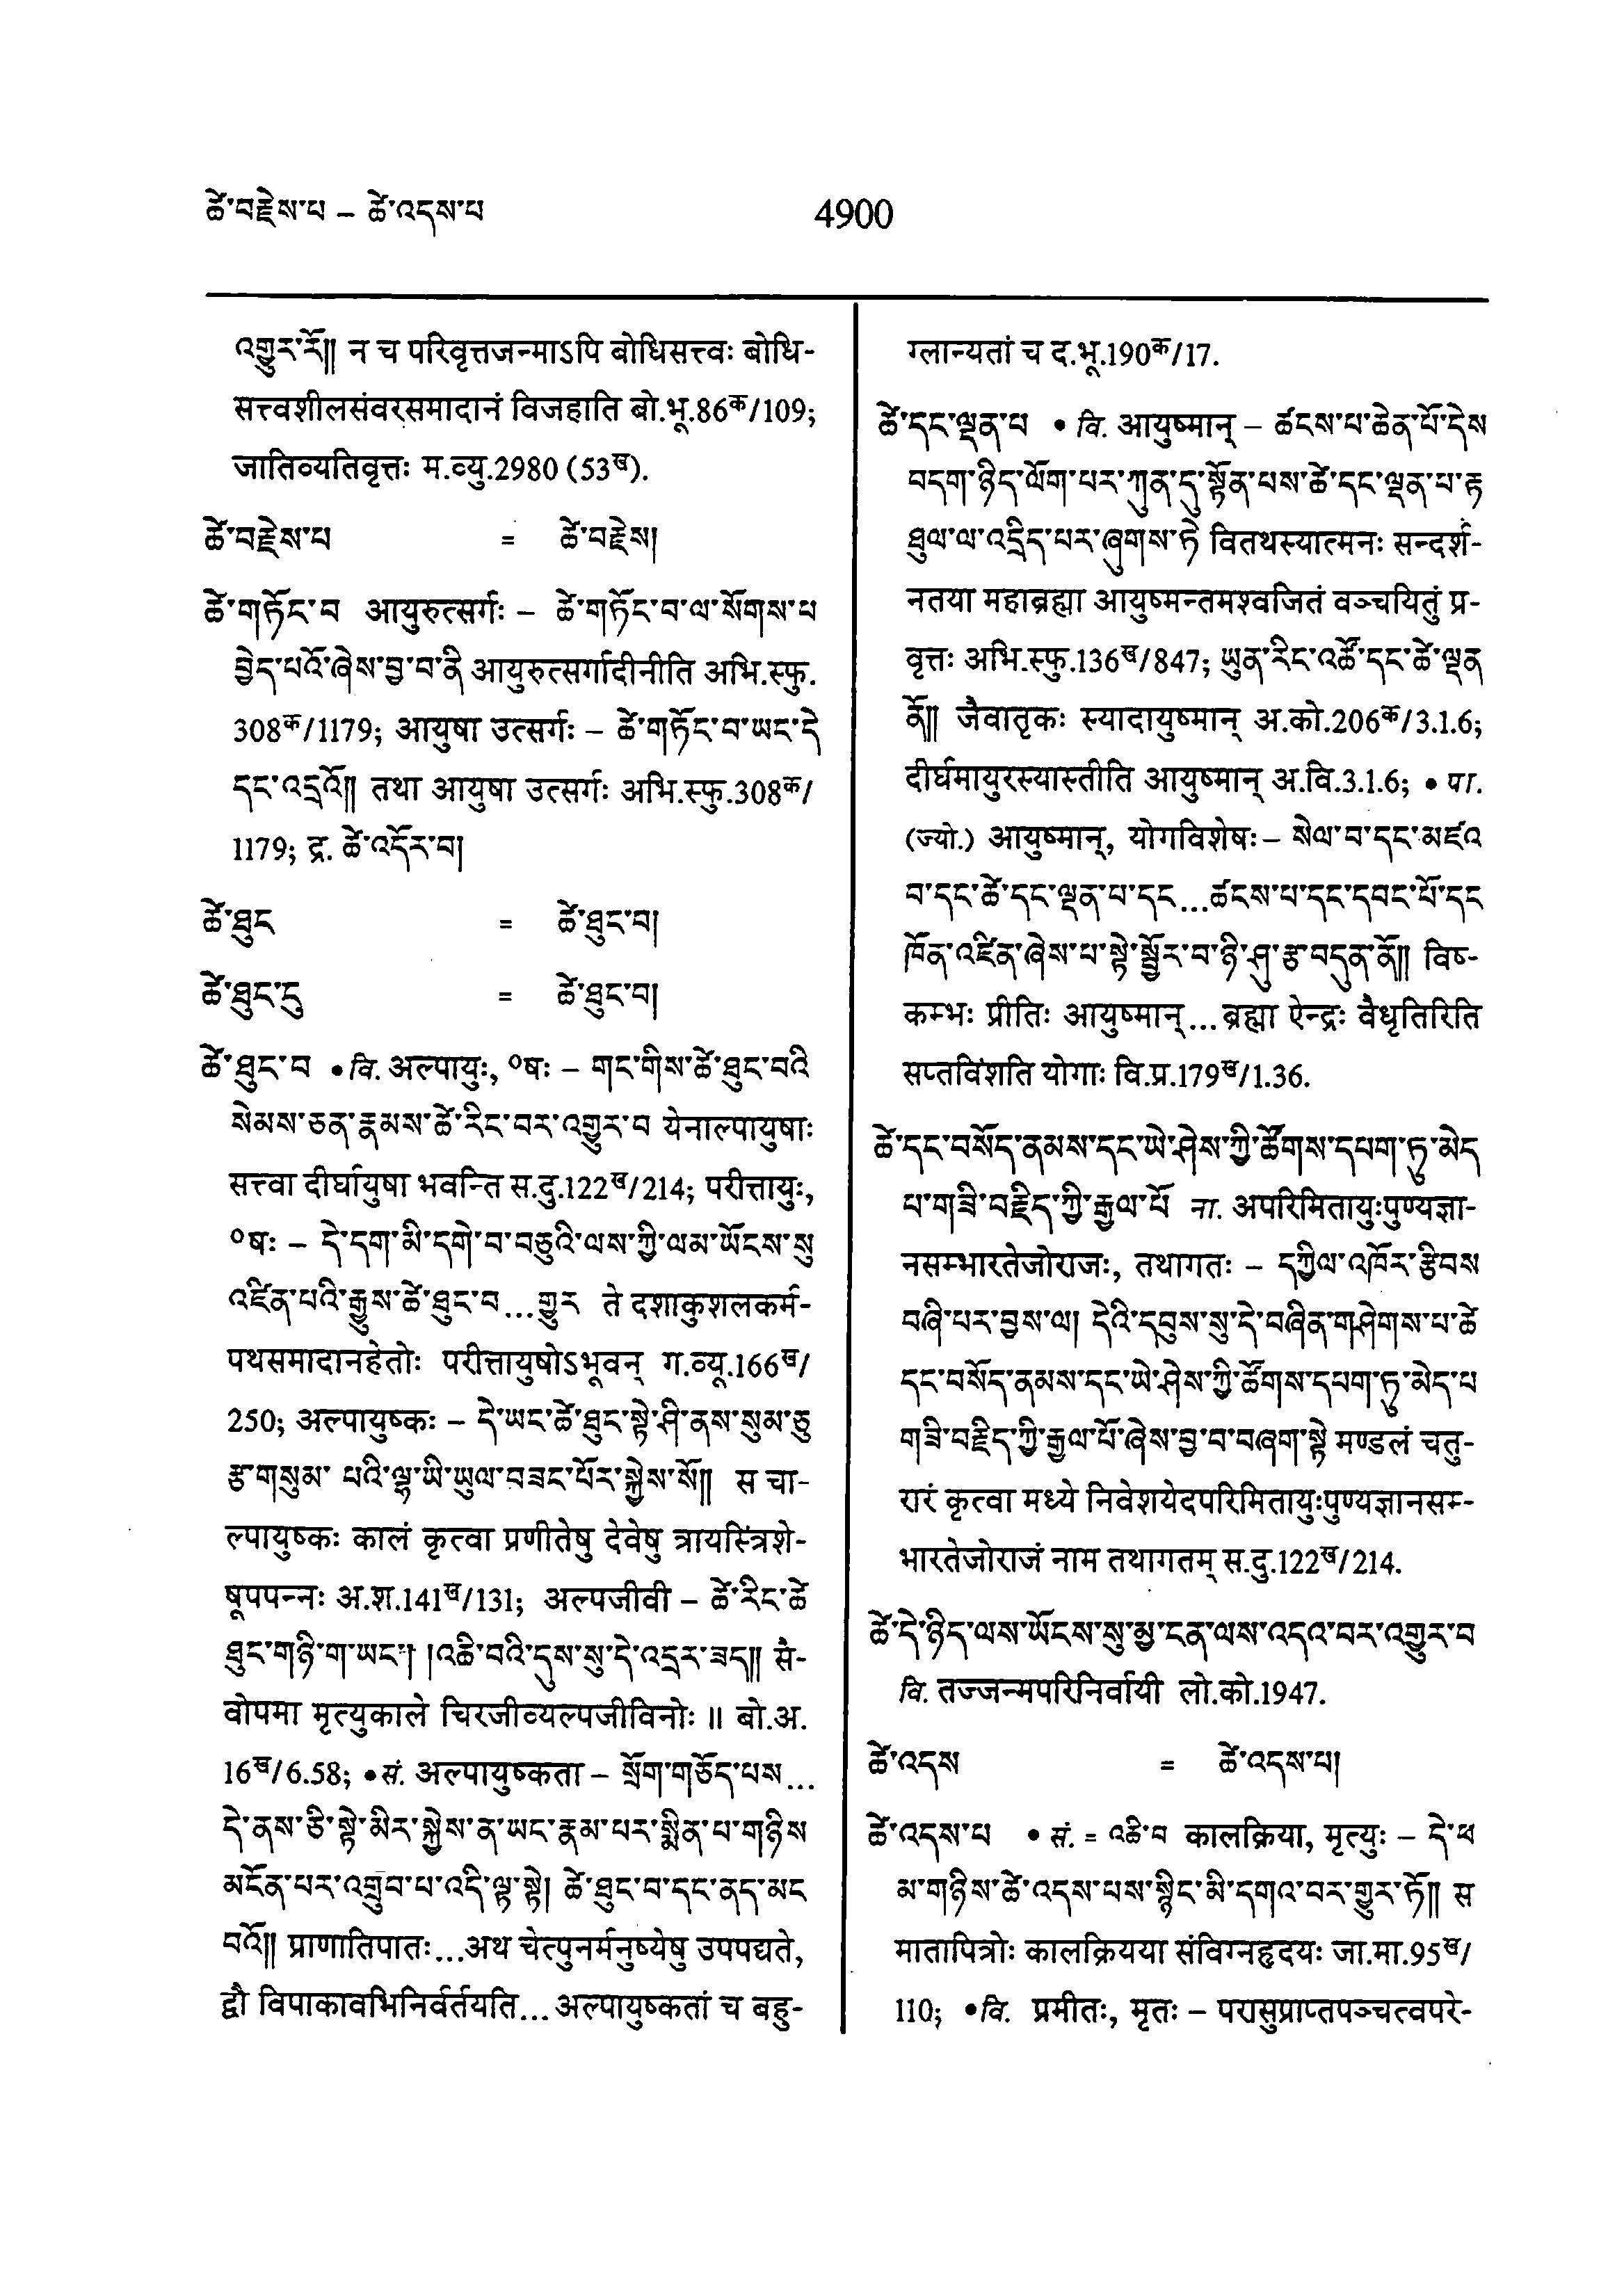 ཚེ་བརྗེས་པ – ཚེ་འདས་པ
4900
འགྱུར་རོ༎ न च परिवृत्तजन्माऽपि बोधिसत्त्वः बोधि-
सत्त्वशीलसंवरसमादानं विजहाति बो.भू.86क/109;
जातिव्यतिवृत्तः म.व्यु.2980 (53ख).
ཚེ་བརྗེས་པ = ཚེ་བརྗེས།
ཚེ་གཏོང་བ आयुरुत्सर्गः – ཚེ་གཏོང་བ་ལ་སོགས་པ
བྱེད་པའོ་ཞེས་བྱ་བ་ནི आयुरुत्सर्गादीनीति अभि.स्फु.
308क/1179; आयुषा उत्सर्गः – ཚེ་གཏོང་བ་ཡང་དེ
དང་འདྲའོ༎ तथा आयुषा उत्सर्गः अभि.स्फु.308क/
1179; द्र. ཚེ་འདོར་བ།
ཚེ་ཐུང = ཚེ་ཐུང་བ།
ཚེ་ཐུང་དུ = ཚེ་ཐུང་བ།
ཚེ་ཐུང་བ •वि. अल्पायुः, ०षः – གང་གིས་ཚེ་ཐུང་བའི
སེམས་ཅན་རྣམས་ཚེ་རིང་བར་འགྱུར་བ येनाल्पायुषाः
सत्त्वा दीर्घायुषा भवन्ति स.दु.122ख/214; परीत्तायुः,
०षः – དེ་དག་མི་དགེ་བ་བཅུའི་ལས་ཀྱི་ལམ་ཡོངས་སུ
འཛིན་པའི་རྒྱུས་ཚེ་ཐུང་བ…གྱུར ते दशाकुशलकर्म-
पथसमादानहेतोः परीत्तायुषोऽभूवन् ग.व्यू.166ख/
250; अल्पायुष्कः – དེ་ཡང་ཚེ་ཐུང་སྟེ་ཤི་ནས་སུམ་ཅུ
རྩ་གསུམ་ པའི་ལྷ་ཡི་ཡུལ་བཟང་པོར་སྐྱེས་སོ༎ स चा-
ल्पायुष्कः कालं कृत्वा प्रणीतेषु देवेषु त्रायस्त्रिंशे-
षूपपन्नः अ.श.141ख/131; अल्पजीवी – ཚེ་རིང་ཚེ
ཐུང་གཉི་ག་ཡང་། །འཆི་བའི་དུས་སུ་དེ་འདྲར་ཟད༎ सै-
वोपमा मृत्युकाले चिरजीव्यल्पजीविनोः ॥ बो.अ.
16ख/6.58; •सं. अल्पायुष्कता – སྲོག་གཅོད་པས…
དེ་ནས་ཅི་སྟེ་མིར་སྐྱེས་ན་ཡང་རྣམ་པར་སྨིན་པ་གཉིས
མངོན་པར་འགྲུབ་པ་འདི་ལྟ་སྟེ། ཚེ་ཐུང་བ་དང་ནད་མང
བའོ༎ प्राणातिपातः…अथ चेत्पुनर्मनुष्येषु उपपद्यते,
द्वौ विपाकावभिनिर्वर्तयति… अल्पायुष्कतां च बहु-
ग्लान्यतां च द.भू.190क/17.
ཚེ་དང་ལྡན་པ • वि. आयुष्मान् – ཚངས་པ་ཆེན་པོ་དེས
བདག་ཉིད་ལོག་པར་ཀུན་དུ་སྟོན་པས་ཚེ་དང་ལྡན་པ་རྟ
ཐུལ་ལ་འདྲིད་པར་ཞུགས་ཏེ वितथस्यात्मनः सन्दर्श-
नतया महाब्रह्मा आयुष्मन्तमश्वजितं वञ्चयितुं प्र-
वृत्तः अभि.स्फु.136ख/847; ཡུན་རིང་འཚོ་དང་ཚེ་ལྡན
ནོ༎ जैवातृकः स्यादायुष्मान् अ.को.206क/3.1.6;
दीर्घमायुरस्यास्तीति आयुष्मान् अ.वि.3.1.6; • पा.
(ज्यो.) आयुष्मान्, योगविशेषः – སེལ་བ་དང་མཛའ
བ་དང་ཚེ་དང་ལྡན་པ་དང…ཚངས་པ་དང་དབང་པོ་དང
ཁོན་འཛིན་ཞེས་པ་སྟེ་སྦྱོར་བ་ཉི་ཤུ་རྩ་བདུན་ནོ༎ विष-
कम्भः प्रीतिः आयुष्मान्… ब्रह्मा ऐन्द्रः वैधृतिरिति
सप्तविंशति योगाः वि.प्र.179ख/1.36.
ཚེ་དང་བསོད་ནམས་དང་ཡེ་ཤེས་ཀྱི་ཚོགས་དཔག་ཏུ་མེད
པ་གཟི་བརྗིད་ཀྱི་རྒྱལ་པོ ना. अपरिमितायुःपुण्यज्ञा-
नसम्भारतेजोराजः, तथागतः – དཀྱིལ་འཁོར་རྩིབས
བཞི་པར་བྱས་ལ། དེའི་དབུས་སུ་དེ་བཞིན་གཤེགས་པ་ཚེ
དང་བསོད་ནམས་དང་ཡེ་ཤེས་ཀྱི་ཚོགས་དཔག་ཏུ་མེད་པ
གཟི་བརྗིད་ཀྱི་རྒྱལ་པོ་ཞེས་བྱ་བ་བཞག་སྟེ मण्डलं चतु-
रारं कृत्वा मध्ये निवेशयेदपरिमितायुःपुण्यज्ञानसम-
भारतेजोराजं नाम तथागतम् स.दु.122ख/214.
ཚེ་དེ་ཉིད་ལས་ཡོངས་སུ་མྱ་ངན་ལས་འདའ་བར་འགྱུར་བ
वि. तज्जन्मपरिनिर्वायी लो.को.1947.
ཚེ་འདས = ཚེ་འདས་པ།
ཚེ་འདས་པ • सं. = འཆི་བ कालक्रिया, मृत्युः – དེ་ཕ
མ་གཉིས་ཚེ་འདས་པས་སྙིང་མི་དགའ་བར་གྱུར་ཏོ༎ स
मातापित्रोः कालक्रियया संविग्नहृदयः जा.मा.95ख/
110; •वि. प्रमीतः, मृतः – परासुप्राप्तपञ्चत्वपरे-